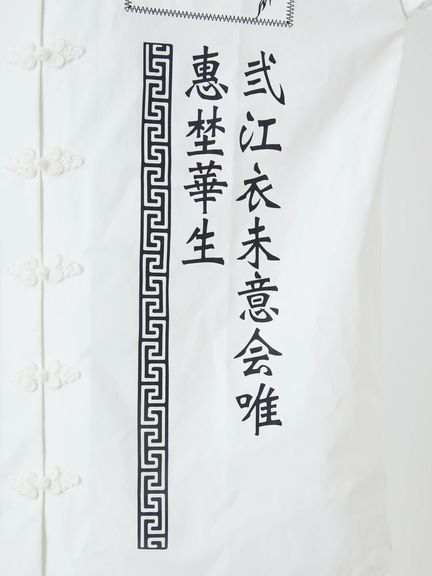 弍江衣未意会唯
惠埜華生